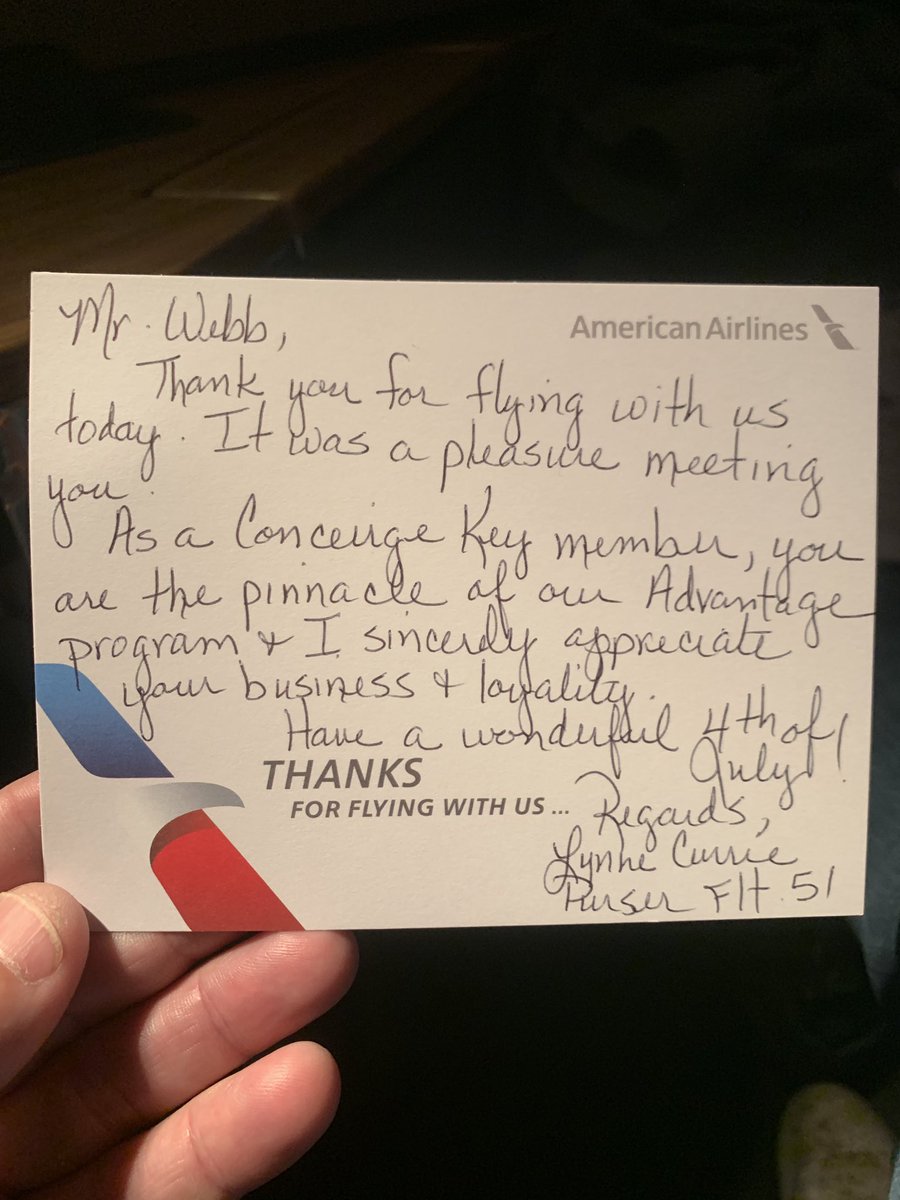 Mr. Webb,
American Airlines
Thank you for flying with us
today. It was a pleasure meeting
you.
As a Conceirge Key member, you
are the pinnacle of our Advantage
program & I sincerely appreciate
your business & loyality.
Have a wonderful 4th of
July!
THANKS
FOR FLYING WITH US ...
Regards,
Lynne Currie
Purser Flt. 51